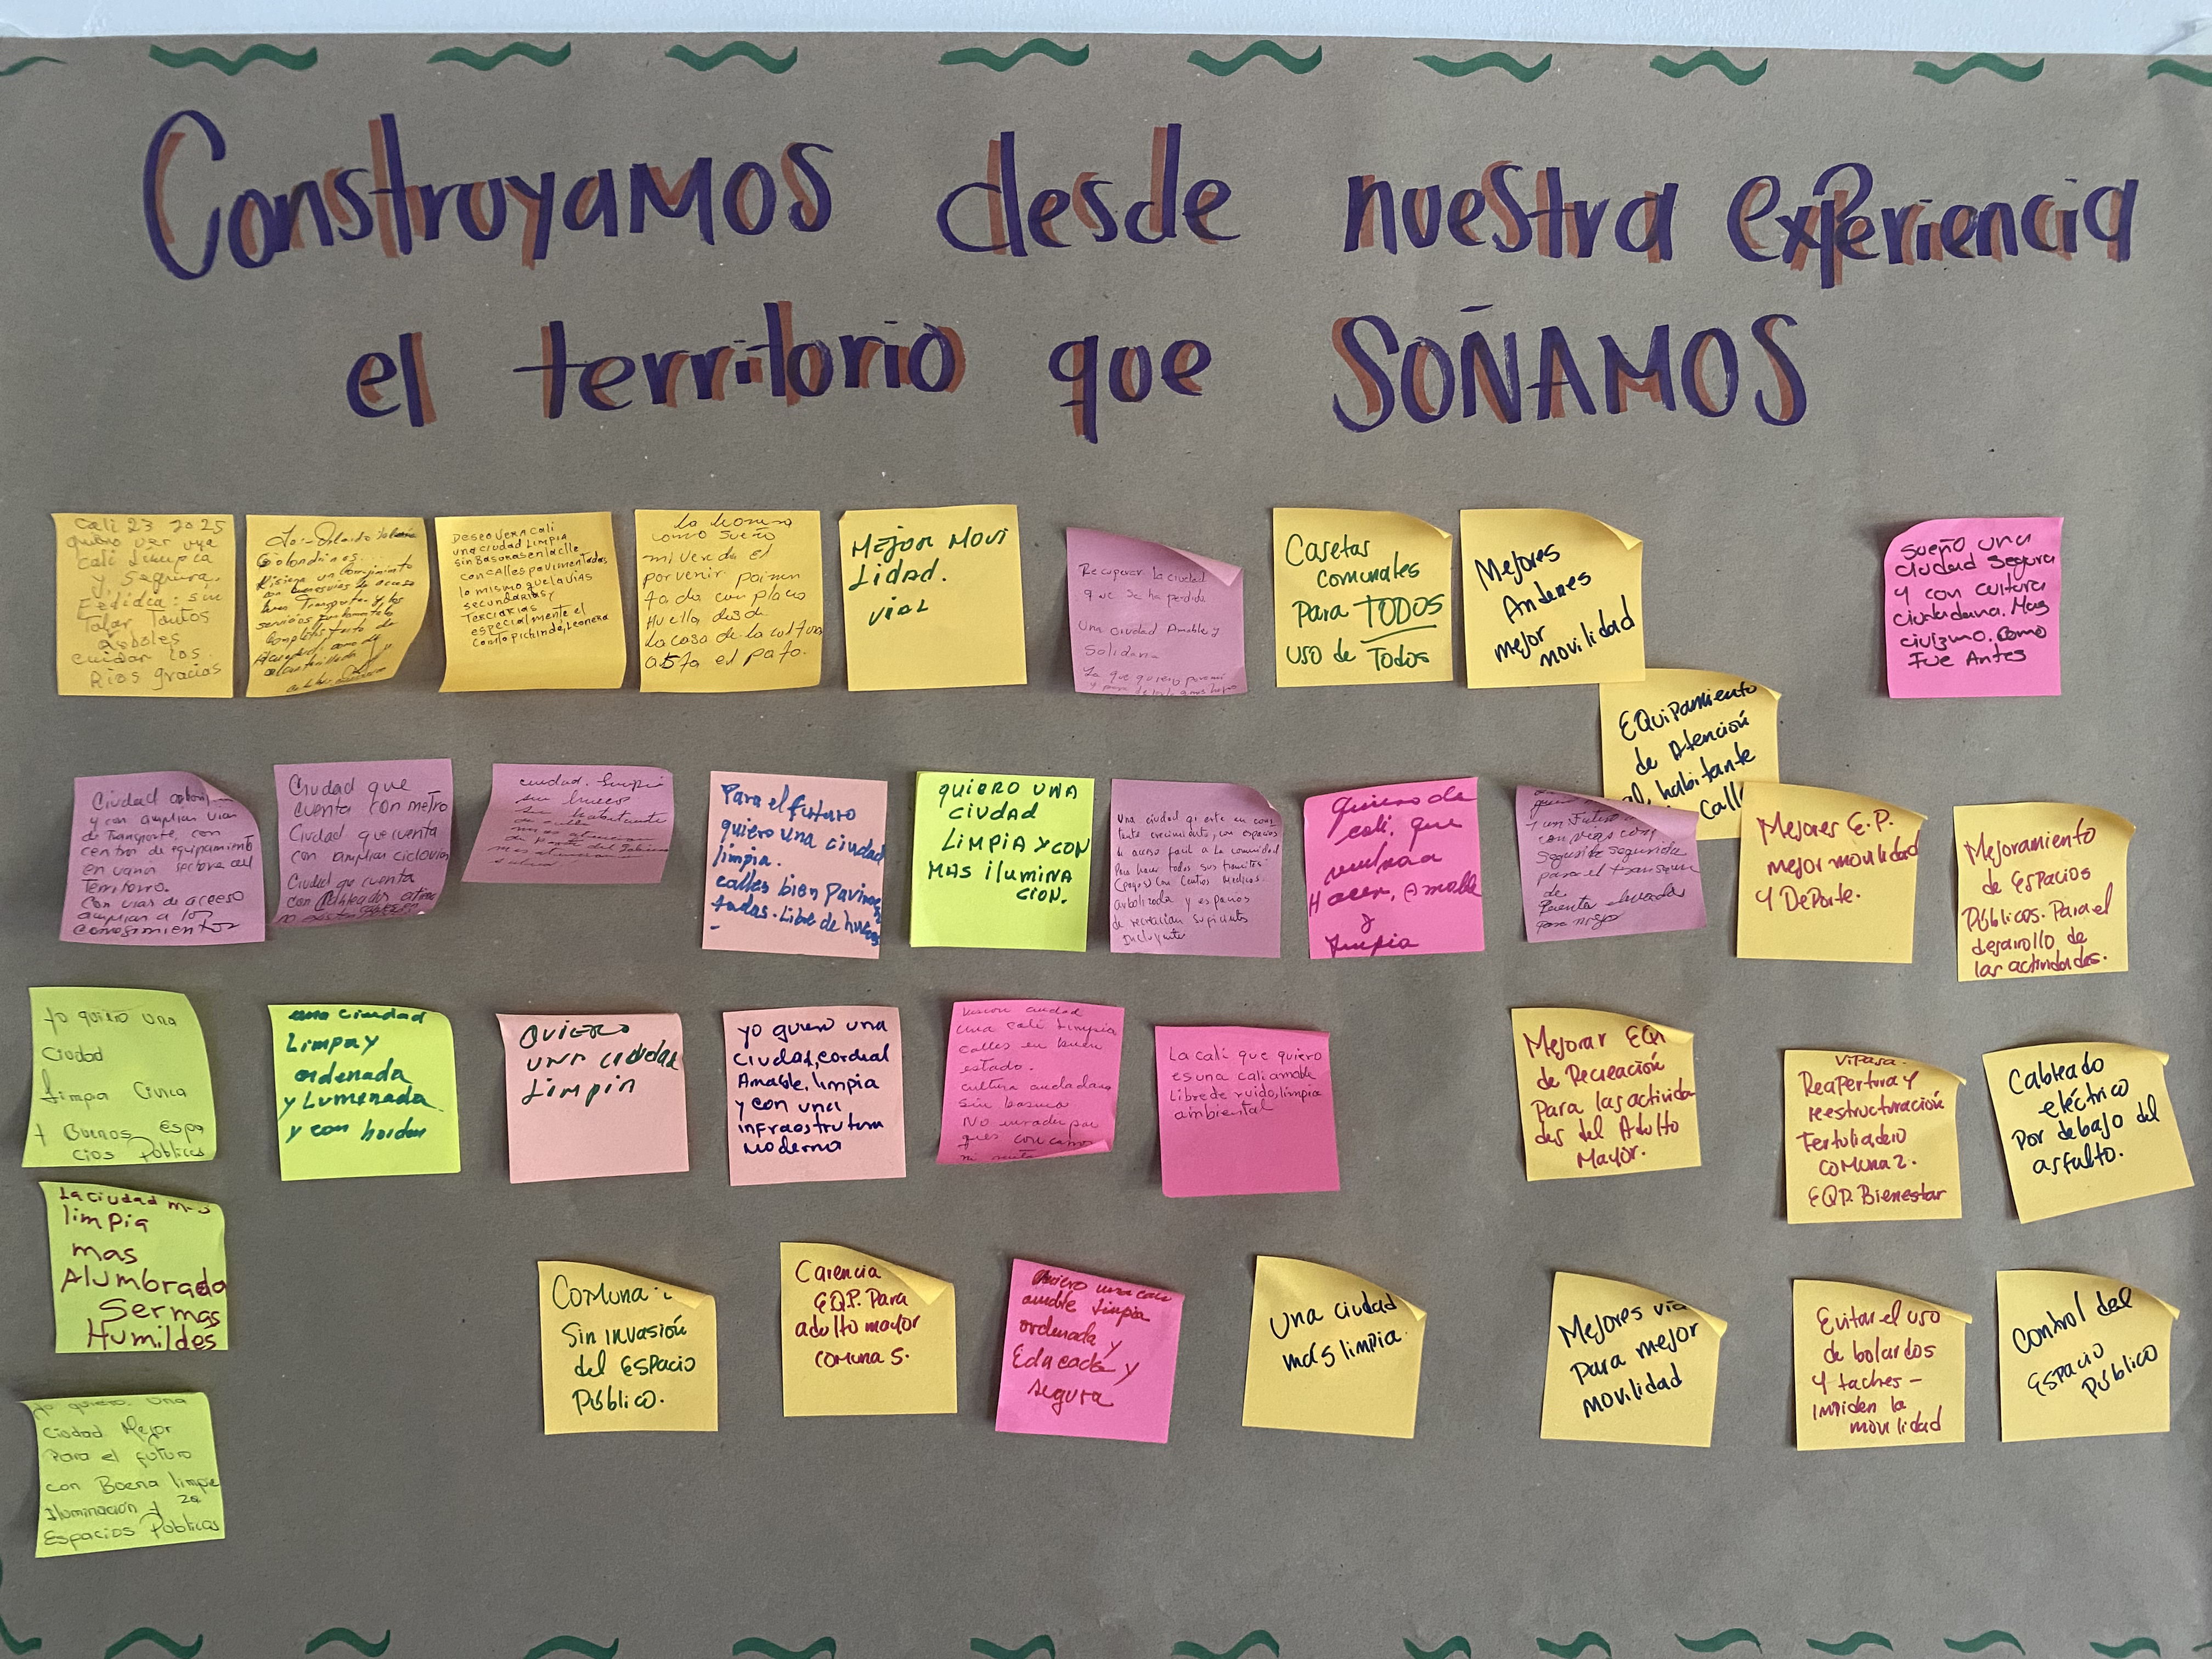 Construyamos desde nuestra experiencia
el territorio que SOÑAMOS
Cali 23 2025
quiero ver una
Cali Limpia
y segura.
sin
Talar Tantos
arboles
cuidar los
Rios gracias
Golondrinas
DESEO VER A CALI
una ciudad LIMPIA
sin Basoras en la clle
con calles pavimentadas
lo mismo que la vias
secundarias y
Tercarias
especialmente el
pichinde, Leonera
como sueño
mi vereda el
porvenir
con placa
Huella desde
la casa de la cultura
asta el pato.
MEJOR MOVI
LIDAD.
VIAL
Recuperar la ciudad
que se ha perdido
Una ciudad Amable y
Solidaria
Casetas
comunales
para TODOS
uso de Todos
Mejores
Andenes
mejor
movilidad
sueño una
ciudad Segura
y con cultura
ciudadana. Mas
civizmo. como
Fue Antes
EQUIPAMIENTO
de Atención
al habitante
Calle
Ciudad
y con amplias vias
de Transporte, con
centros de equipamiento
en varios sectores del
Territorio.
Con vias de acceso
amplias a los
corregimientos
Ciudad que
cuenta con metro
Ciudad que cuenta
con amplias ciclovias
Ciudad que cuenta
con
ciudad limpia
sin huecos
sin habitante
de calle
Para el futuro
quiero una ciudad
limpia.
calles bien pavimen
tadas. Libre de huecos
QUIERO UNA
CIUDAD
LIMPIA Y CON
MAS ILUMINA
CION.
Una ciudad qi este en cons
tante crecimiento, con espacios
de acceso facil a la comunidad
Para hacer todos sus tramites
(pagos) Con Centros Medicos.
arbolizada y espacios
de recreacion suficientes
Incluyente
Quiero de
cali, que
vuelva a
Hacer, Amable
y
Limpia
y un Futuro
con vias con
seguridad
para el
de
Puentes elevados
para mejor
Mejores E.P.
mejor movilidad
y Deporte.
Mejoramiento
de Espacios
Públicos. Para el
desarollo de
las actividades.
Yo quiero una
Ciudad
Limpia Civica
+ Buenos Espa
cios Publicos
una ciudad
Limpa y
ordenada
y Lumenada
y con
QUIERO
UNA CIUDAD
LIMPIA
yo quiero una
ciudad, cordial
Amable, limpia
y con una
infraestrutura
moderna
Vision ciudad
Una cali Limpia
calles en buen
estado.
cultura ciudadana
Sin basura.
No invadir par
ques con carros
La cali que quiero
es una cali amable
Libre de ruido, limpia
ambiental
Mejorar EQP
de Recreación
para las activida
des del Adulto
Mayor.
Reapertura y
reestructuración
Tertuliadero
comuna 2.
EQP. Bienestar
Cableado
eléctrico
Por debajo del
asfalto.
La ciudad mas
limpia
mas
Alumbrada
Ser mas
Humildes
Comuna
Sin invasión
del Espacio
Público.
Carencia
EQP. Para
adulto mayor
comuna 5.
Quiero una cali
amble limpia
ordenada y
Educada y
segura
Una ciudad
más limpia.
Mejores vía
para mejor
movilidad
Evitar el uso
de bolardos
y taches -
impiden la
movilidad
Control del
Espacio
Público
Yo quiero una
Ciudad Mejor
Para el futuro
con Buena limpie
za
Iluminación y
Espacios Publicos